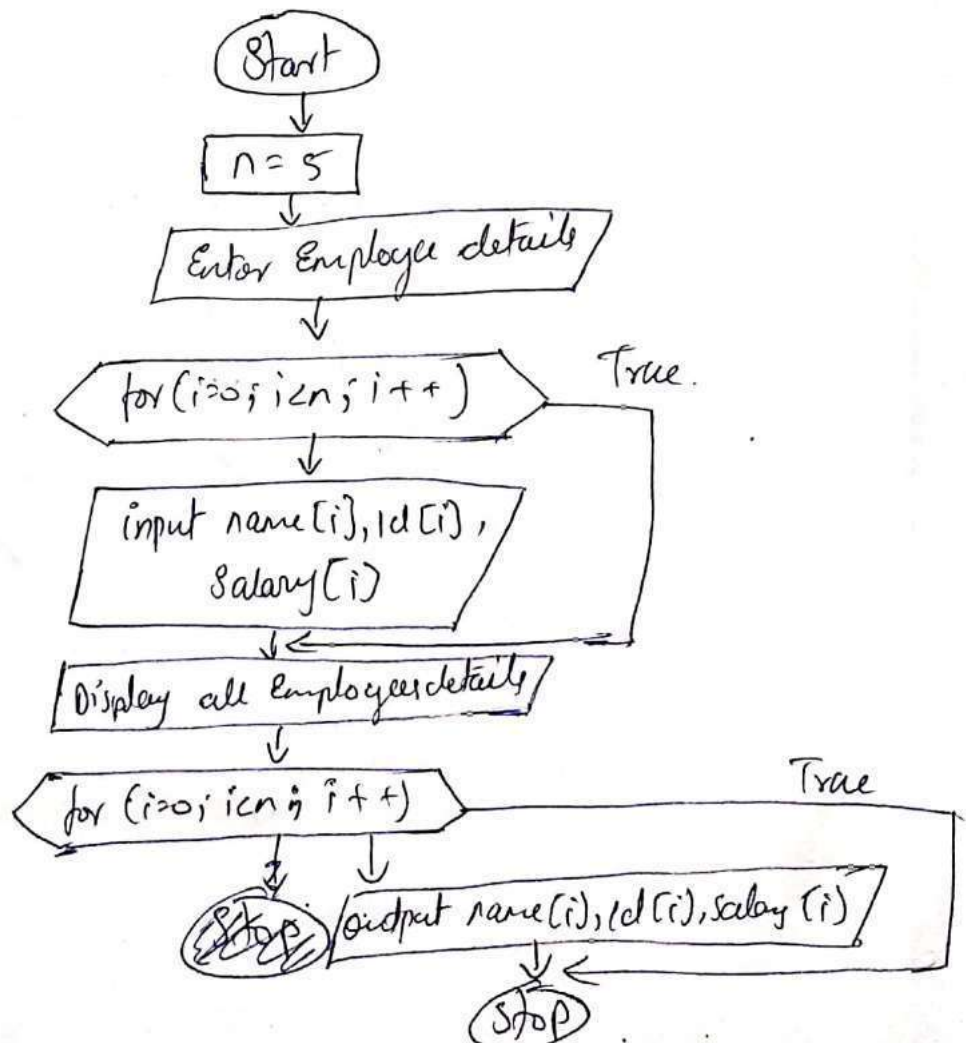 Start
n = 5
Enter Employee details
for (i=0; i<n; i++)
True.
input name[i], id[i],
Salary[i]
Display all Employees details
for (i=0; i<n; i++)
True
Stop
output name(i), id(i), salary (i)
Stop